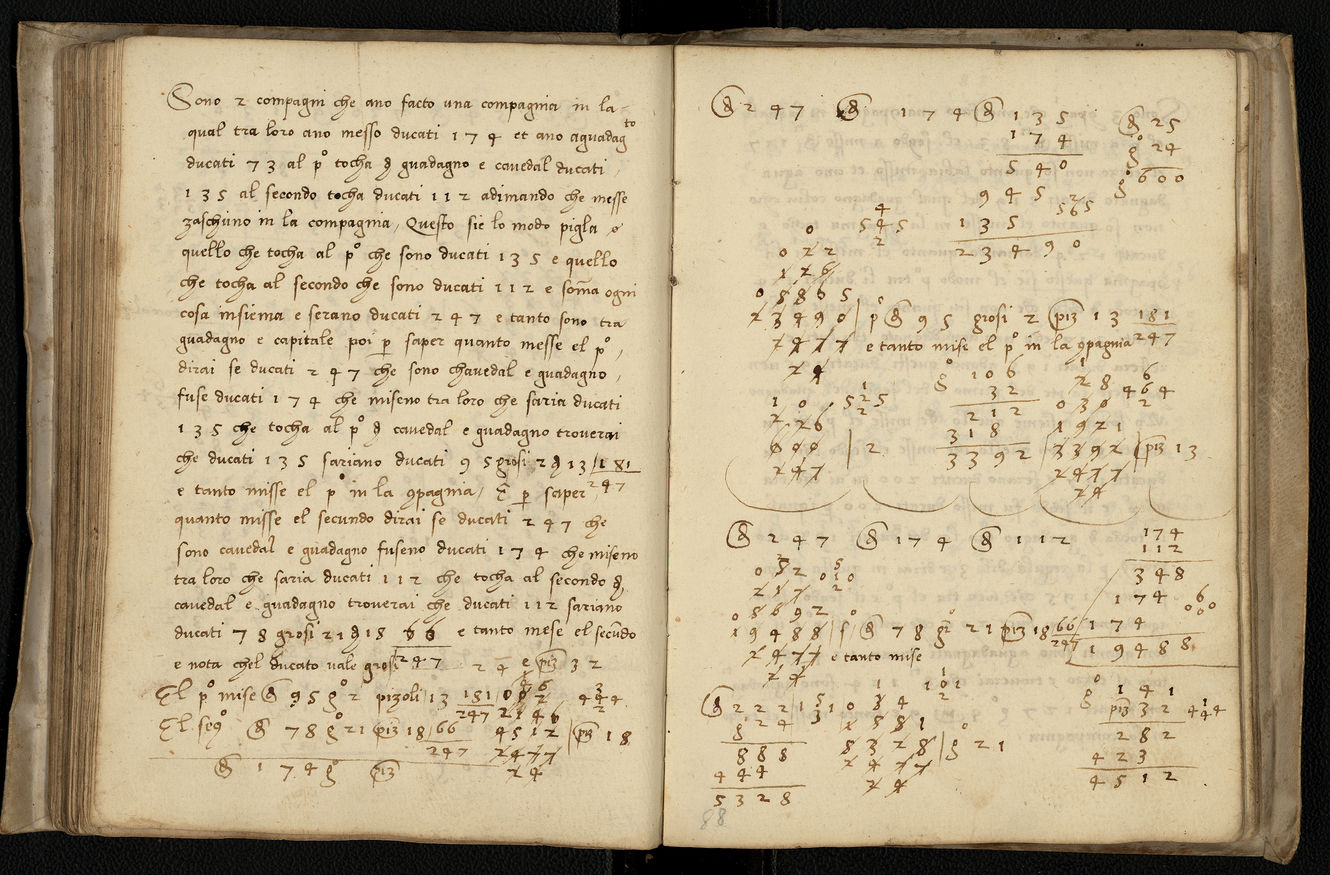 Sono 2 compagni che ano facto una compagnia in la-
qual tra loro ano messo ducati 174 et ano aguadagto
ducati 73 al pº tocha guadagno e cavedal ducati
135 al secondo tocha ducati 112 adimando che messe
zaschuno in la compagnia, Questo sie lo modo pigla
quello che tocha al pº che sono ducati 135 e quello
che tocha al secondo che sono ducati 112 e soma ogni
cosa insiema e serano ducati 247 e tanto sono tra
guadagno e capitale poi p saper quanto messe el pº,
dirai se ducati 247 che sono chavedal e guadagno,
fuse ducati 174 che miseno tra loro che saria ducati
135 che tocha al pº cavedal e guadagno troverai
che ducati 135 sariano ducati 95 grosi 2 13 181
247
e tanto misse el pº in la 9pagnia, E p saper
quanto misse el secundo dirai se ducati 247 che
sono cavedal e guadagno fuseno ducati 174 che miseno
tra loro che saria ducati 112 che tocha al secondo
cavedal e guadagno troverai che ducati 112 sariano
ducati 78 grosi 21 18 66 e tanto mese el secundo
e nota chel ducato vale grosi 247 24 e piz 32
El pº mise 95 gº 2 pizoli 13 181 444
247 2146
El segº 78 gº 21 piz 18 66 4512 piz 18
247 2477
174 gº piz 24
247 174 135 25
174 gº 24
540 gº 600
945
545 135 565
23490
022
126
08865
23490 pº 95 grosi 2 piz 13 181
2477 e tanto mise el pº in la 9pagnia 247
24
gº 106 28 464
32
10 525 212 030
226 318 1921
000 2 3392 3392 piz 13
247 2477
24
247 174 112 174
112
052 010 348
217 174
05692 000
19488 78 gº 21 piz 18 66 174
2477 247 19488
24 e tanto mise
2221 gº 141
gº 24 1581 piz 32 444
888 5328 gº 21 282
444 2477 423
5328 24 4512
88